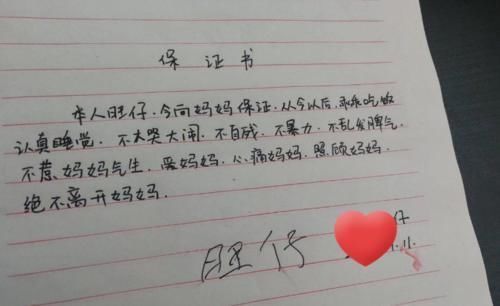 保证书
本人旺仔.今向妈妈保证.从今以后.乖乖吃饭
认真睡觉.不大哭大闹.不自残.不暴力.不乱发脾气.
不惹妈妈气生.爱妈妈.心痛妈妈.照顾妈妈.
绝不离开妈妈.
旺仔
仔